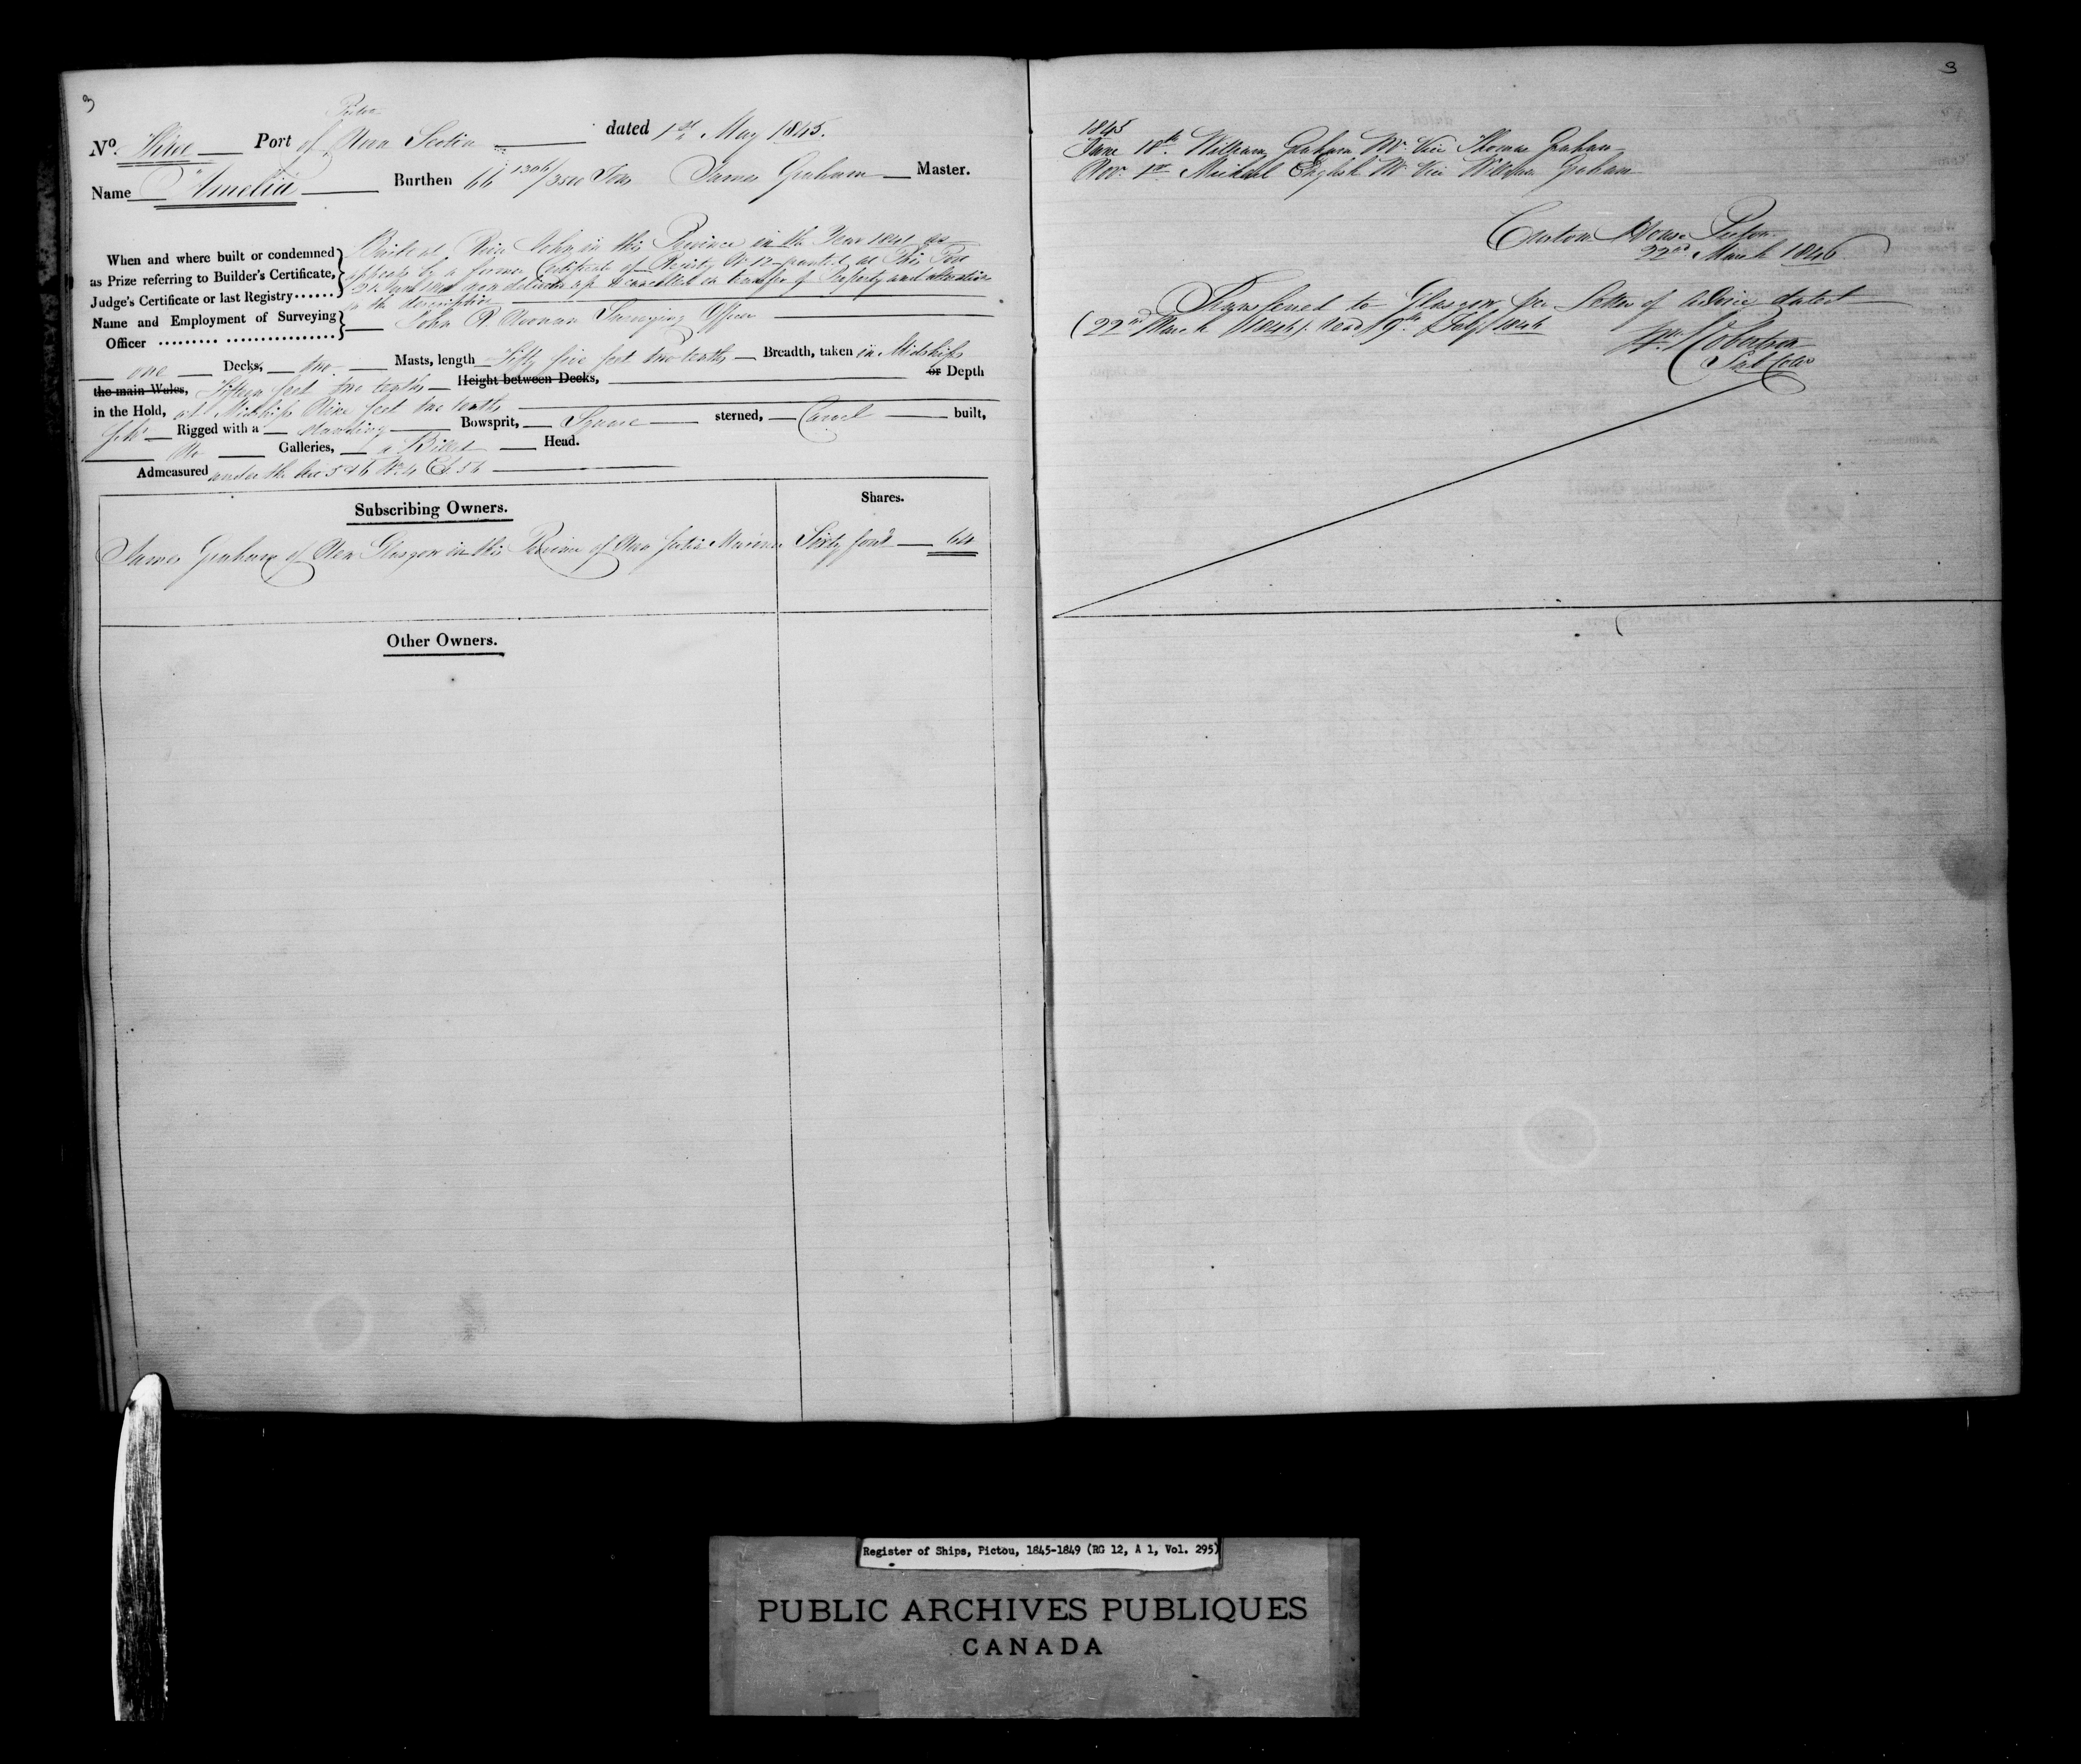 3
Pictou
No. Three Port of Nova Scotia dated 1st May 1845.
Name Amelia Burthen 66 1306/3500 Tons James Graham Master.
When and where built or condemned as Prize referring to Builder's Certificate, Judge's Certificate or last Registry......
Built at River John in this Province in the Year 1841 as
appears by a former Certificate of Registry No 12 granted at This Port
now delivered up & cancelled on transfer of Property and alteration
in the description
Name and Employment of Surveying Officer ......... ..................
John R. Noonan Surveying Officer
one Decks, two Masts, length Fifty five feet two tenths Breadth, taken in Midships
the main Wales, Fifteen feet two tenths Height between Decks, or Depth
in the Hold, at Midships Nine feet two tenths
Sch'r Rigged with a standing Bowsprit, Square sterned, Carvel built,
No Galleries, a Billet Head.
Admeasured under the Act 5 & 6 Wm 4 Ch 56
Subscribing Owners. Shares.
James Graham of New Glasgow in this Province of Nova Scotia Mariner Sixty four 64
Other Owners.
3
1845
June 18th William Graham Mr. Vice Thomas Graham
Nov. 1st Michael English Mr. Vice William Graham
Custom House Pictou
22nd March 1846
Transferred to Glasgow per Letter of Advice dated
(22nd March 1846). read 9th July 1846
Wm. Robertson
Sub Coll
Register of Ships, Pictou, 1845-1849 (RG 12, A 1, Vol. 295)
PUBLIC ARCHIVES PUBLIQUES
CANADA